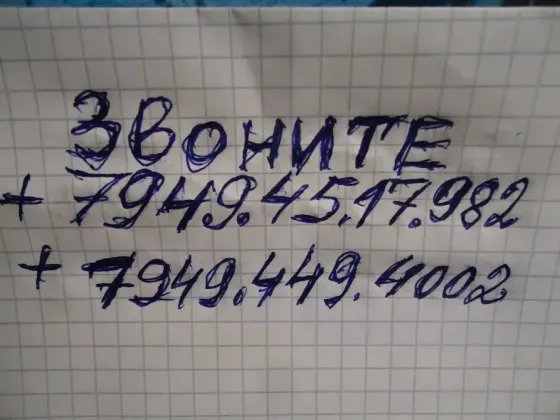 ЗВОНИТЕ
+ 7949.45.17.982
+ 7949.449.4002